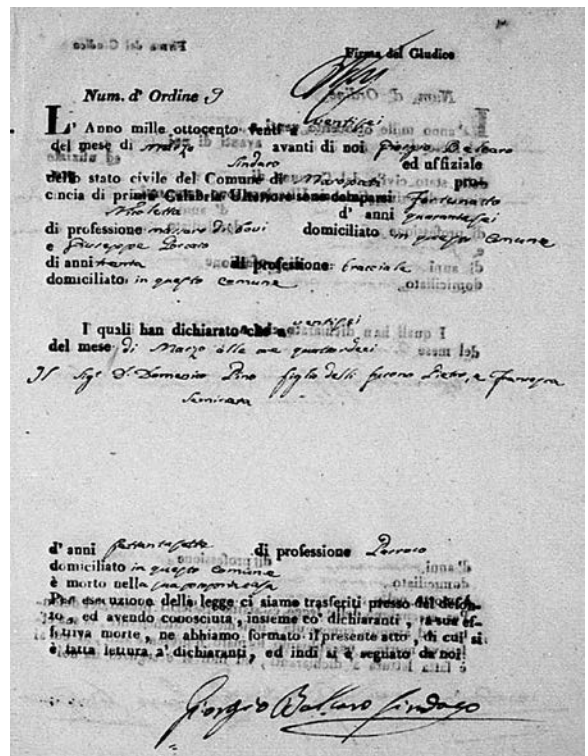 Firma del Giudice
Num. d' Ordine 9
L' Anno mille ottocento venti a ventisei
del mese di Marzo avanti di noi Giorgio
Sindaco ed uffiziale
dello stato civile del Comune di Maropati pro-
cincia di prima Calabria Ulteriore sono comparsi Fortunato
Nicoletta d' anni quarantasei
di professione massaro di bovi domiciliato in questo comune
e Giuseppe Porcaro
di anni trenta di professione bracciale
domiciliato in questo comune
I quali han dichiarato che a ventisei
del mese di Marzo alle ore quattordeci
Il Sigr D. Domenico Pino figlio delli furono Pietro, e Francesca
d' anni settantasette di professione Parroco
domiciliato in questo comune
è morto nella sua propria casa
Per esecuzione della legge ci siamo trasferiti presso del defon-
to, ed avendo conosciuta, insieme co' dichiaranti, la sua ef-
fettiva morte, ne abbiamo formato il presente atto, di cui si
è fatta lettura a' dichiaranti, ed indi si è segnato da noi
Giorgio Sindaco